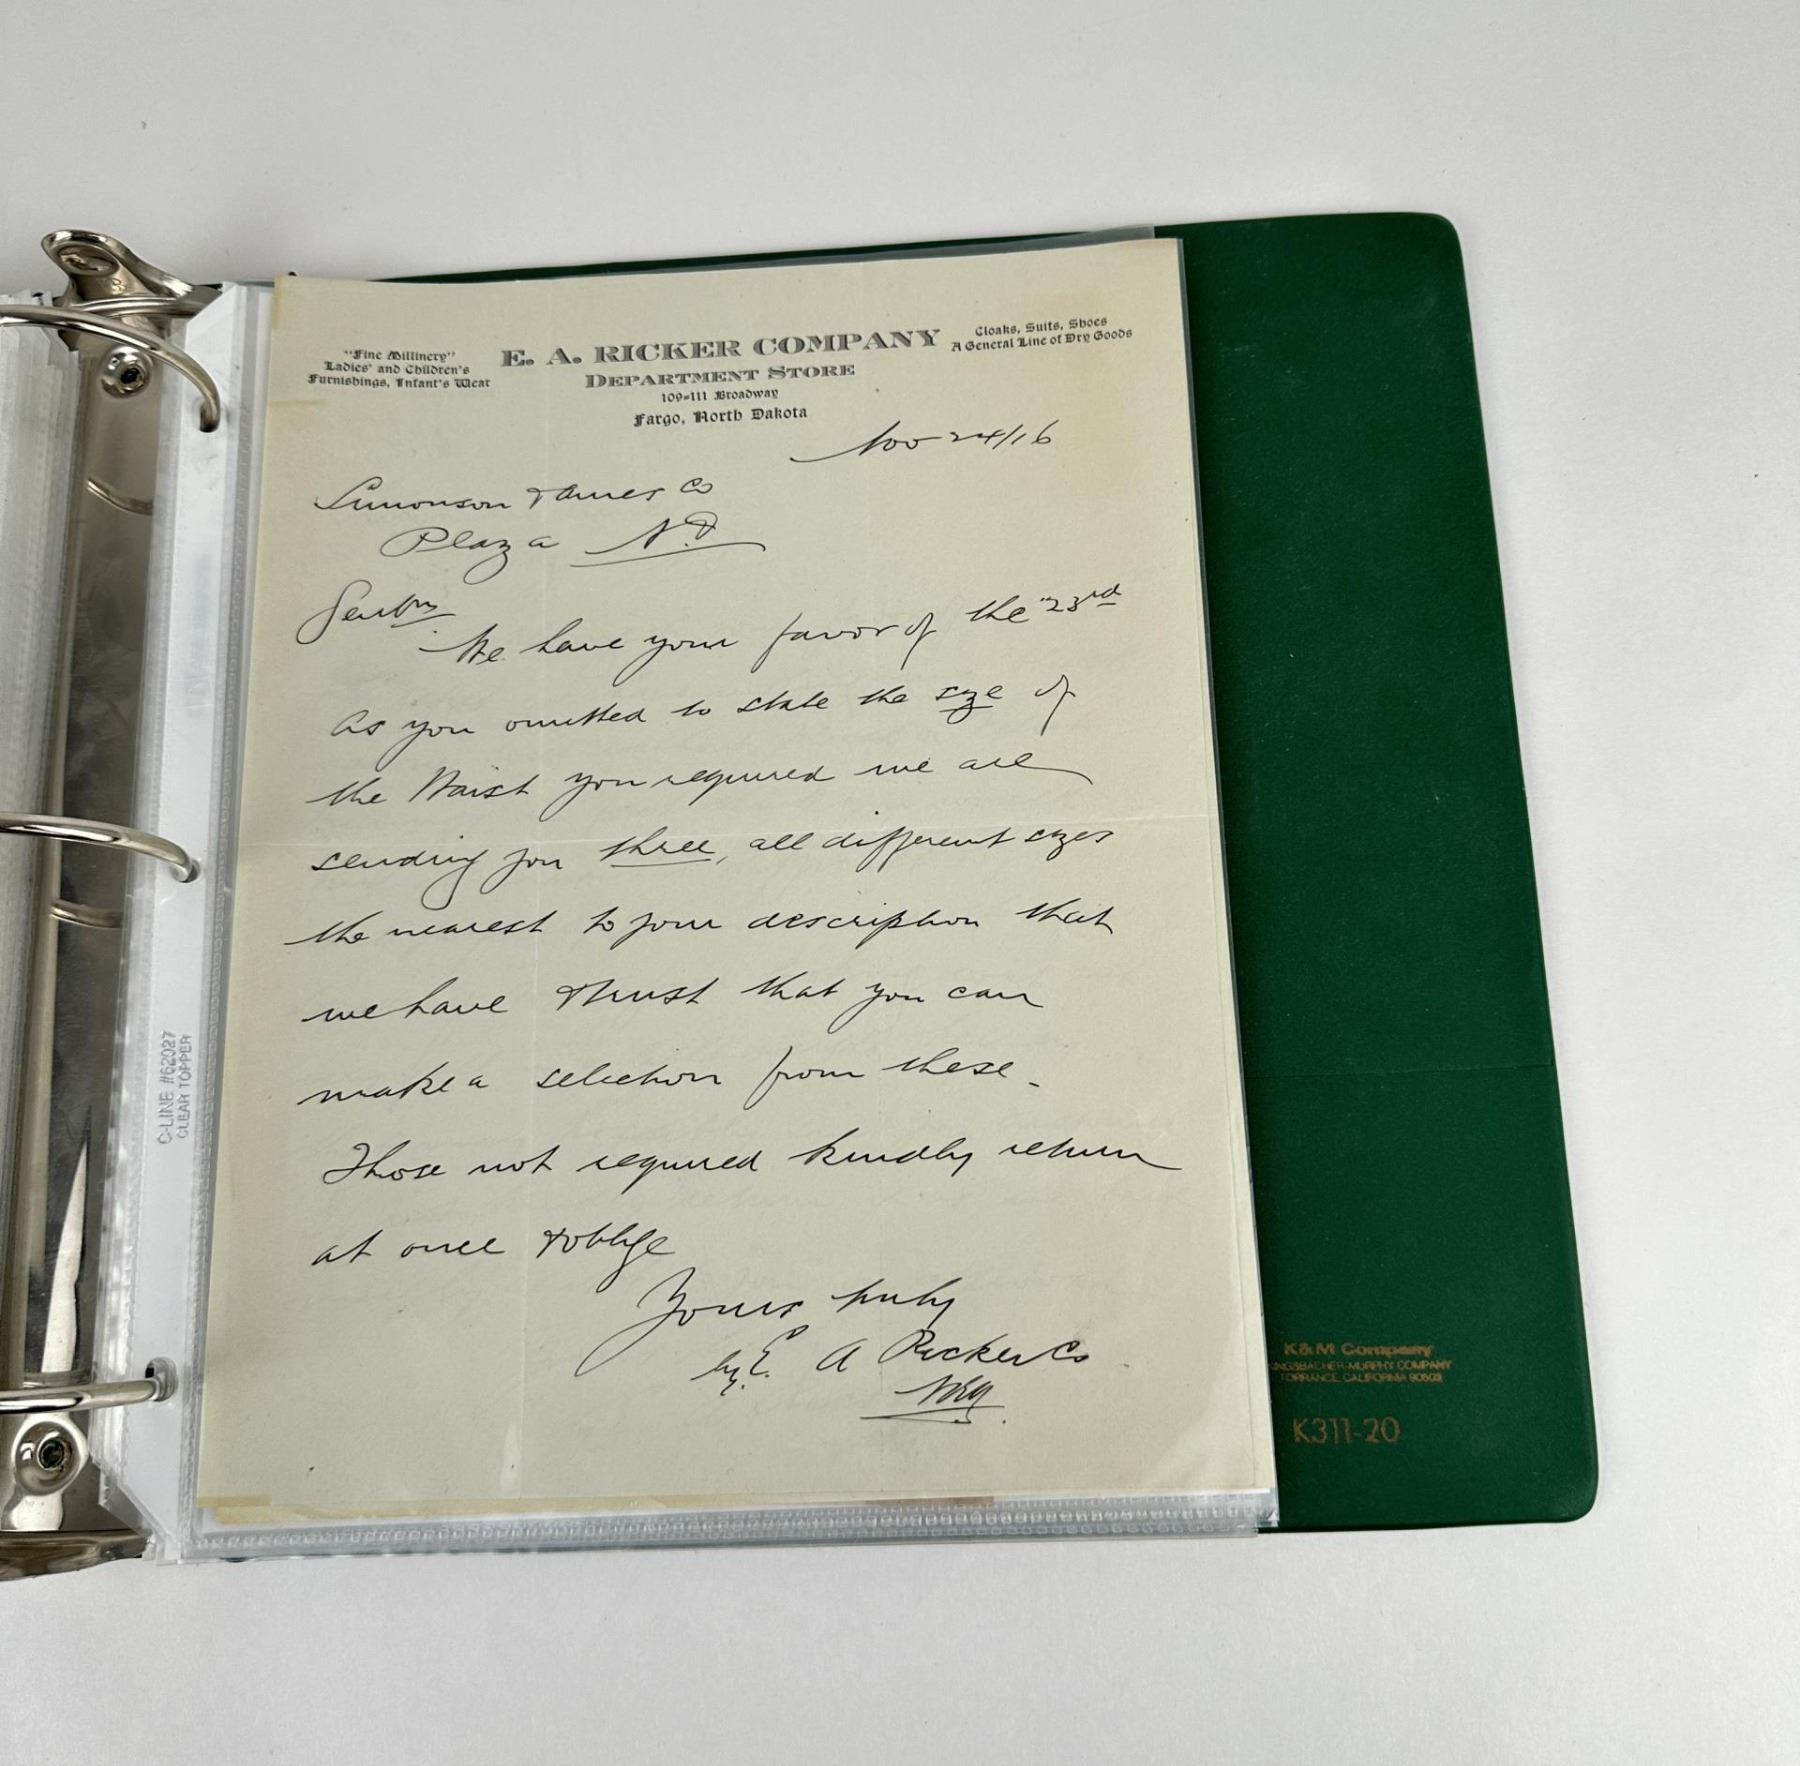 "Fine Millinery"
Ladies' and Children's
Furnishings, Infant's Wear
E. A. RICKER COMPANY
DEPARTMENT STORE
109-111 Broadway
Fargo, North Dakota
Cloaks, Suits, Shoes
A General Line of Dry Goods
Nov 24/16
Simonson & Co
Plaza N.D
Gentm
We have your favor of the 23rd
As you omitted to state the size of
the Waist you required we are
sending you three, all different sizes
the nearest to your description that
we have & trust that you can
make a selection from these.
Those not required kindly return
at once & oblige
Yours truly
by E. A Ricker Co
C-LINE #62027
CLEAR TOPPER
K&M Company
KINGSBACHER-MURPHY COMPANY
TORRANCE, CALIFORNIA 90503
K311-20